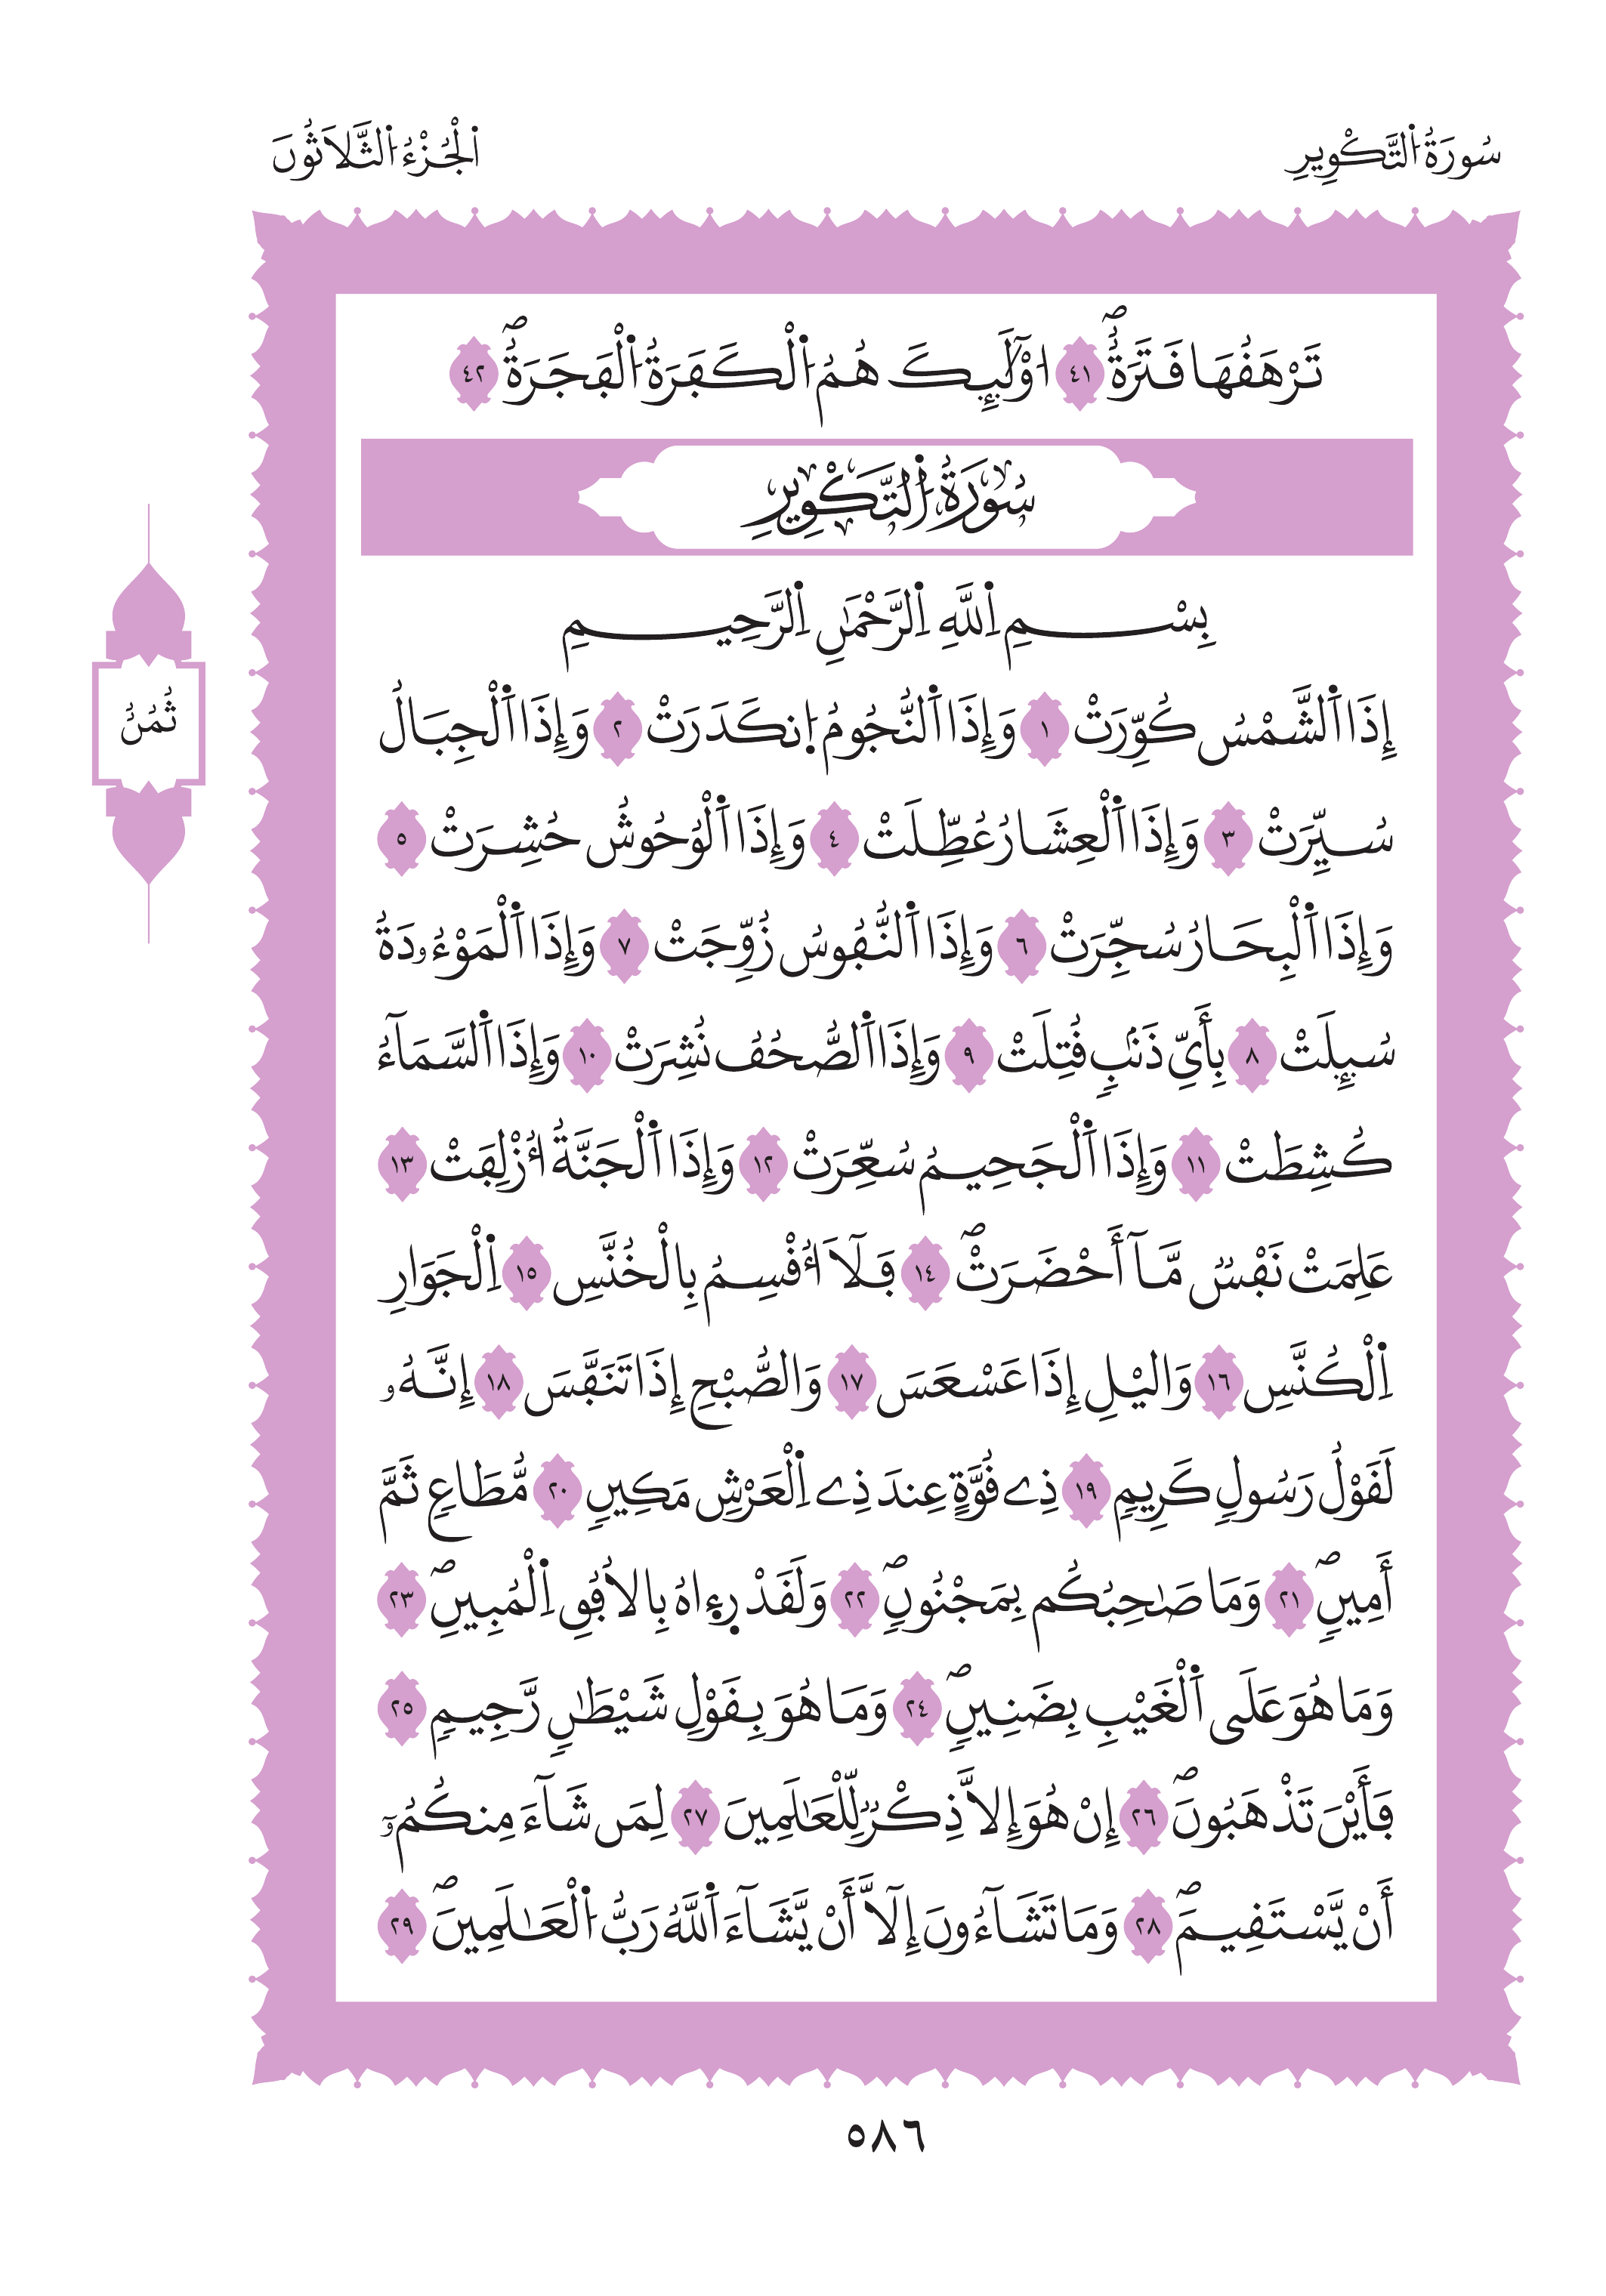 سُورَةُ اُ۬لتَّكْوِيرِ
اُ۬لْجُزْءُ اُ۬لثَّلَاثُونَ
تَرْهَفُهَا فَتَرَةٌۖ ٤١ ا۟وْلَٰٓئِكَ هُمُ اُ۬لْكَفَرَةُ اُ۬لْفَجَرَةُۖ ٤٢
سُورَةُ اُ۬لتَّكْوِيرِ
بِسْمِ اِ۬للَّهِ اِ۬لرَّحْمَٰنِ اِ۬لرَّحِيمِ
إِذَا اَ۬لشَّمْسُ كُوِّرَتْ ١ وَإِذَا اَ۬لنُّجُومُ اُ۪نكَدَرَتْ ٢ وَإِذَا اَ۬لْجِبَالُ
سُيِّرَتْ ٣ وَإِذَا اَ۬لْعِشَارُ عُطِّلَتْ ٤ وَإِذَا اَ۬لْوُحُوشُ حُشِرَتْ ٥
وَإِذَا اَ۬لْبِحَارُ سُجِّرَتْ ٦ وَإِذَا اَ۬لنُّفُوسُ زُوِّجَتْ ٧ وَإِذَا اَ۬لْمَوْءُۥدَةُ
سُئِلَتْ ٨ بِأَيِّ ذَنۢبٖ قُتِلَتْ ٩ وَإِذَا اَ۬لصُّحُفُ نُشِرَتْ ١٠ وَإِذَا اَ۬لسَّمَآءُ
كُشِطَتْ ١١ وَإِذَا اَ۬لْجَحِيمُ سُعِّرَتْ ١٢ وَإِذَا اَ۬لْجَنَّةُ أُزْلِفَتْ ١٣
عَلِمَتْ نَفْسٞ مَّآ أَحْضَرَتْۖ ١٤ فَلَآ أُقْسِمُ بِالْخُنَّسِ ١٥ اِ۬لْجَوَارِ
اِ۬لْكُنَّسِ ١٦ وَاليْلِ إِذَا عَسْعَسَ ١٧ وَالصُّبْحِ إِذَا تَنَفَّسَ ١٨ إِنَّهُۥ
لَقَوْلُ رَسُولٖ كَرِيمٖ ١٩ ذِے قُوَّةٍ عِندَ ذِے اِ۬لْعَرْشِ مَكِينٖ ٢٠ مُّطَاعٖ ثَمَّ
أَمِينٖۖ ٢١ وَمَا صَٰحِبُكُم بِمَجْنُونٖۖ ٢٢ وَلَقَدْ رِء۪اهُ بِالُافُقِ اِ۬لْمُبِينِۖ ٢٣
وَمَا هُوَ عَلَى اَ۬لْغَيْبِ بِضَنِينٖۖ ٢٤ وَمَا هُوَ بِقَوْلِ شَيْطَٰنٖ رَّجِيمٖ ٢٥
فَأَيْنَ تَذْهَبُونَۖ ٢٦ إِنْ هُوَ إِلَّا ذِكْرٞ لِّلْعَٰلَمِينَ ٢٧ لِمَن شَآءَ مِنكُمُۥٓ
أَنْ يَّسْتَقِيمَۖ ٢٨ وَمَا تَشَآءُونَ إِلَّآ أَنْ يَّشَآءَ اَ۬للَّهُ رَبُّ اُ۬لْعَٰلَمِينَۖ ٢٩
ثُمُنُ
٥٨٦